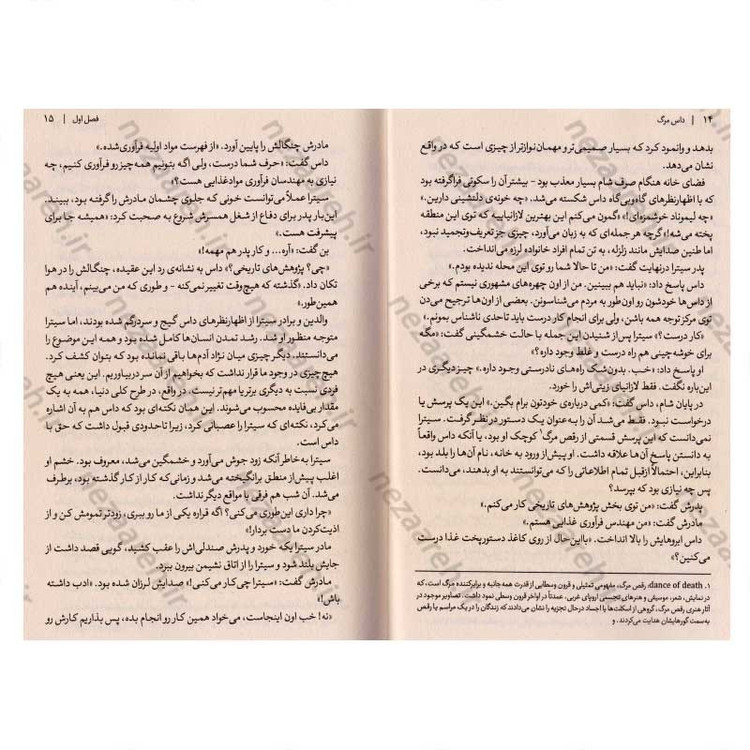 ۱۴ | داس مرگ
بدهد و وانمود کرد که بسیار صمیمی‌تر و مهمان‌نوازتر از چیزی است که در واقع
نشان می‌دهد.
فضای خانه هنگام صرف شام بسیار معذب بود - بیشتر آن را سکوتی فراگرفته بود
که با اظهارنظرهای گاه‌وبی‌گاه داس شکسته می‌شد. «چه خونه‌ی دلنشینی دارین.»
«چه لیموناد خوشمزه‌ای!» «گمون می‌کنم این بهترین لازانیاییه که توی این منطقه
پخته می‌شه!» گرچه هر جمله‌ای که به زبان می‌آورد، چیزی جز تعریف‌وتمجید نبود،
اما طنین صدایش مانند زلزله، به تن تمام افراد خانواده لرزه می‌انداخت.
پدر سیترا درنهایت گفت: «من تا حالا شما رو توی این محله ندیده بودم.»
داس پاسخ داد: «نباید هم ببینین. من از اون چهره‌های مشهوری نیستم که برخی
از داس‌ها خودشون رو اون‌طور به مردم می‌شناسونن. بعضی از اون‌ها ترجیح می‌دن
توی مرکز توجه همه باشن، ولی برای انجام کار درست باید تاحدی ناشناس بمونم.»
«کار درست؟» سیترا پس از شنیدن این جمله با حالت خشمگینی گفت: «مگه
برای خوشه‌چینی هم راه درست و غلط وجود داره؟»
او پاسخ داد: «خب. بدون‌شک راه‌های نادرستی وجود داره.» چیز دیگری در
این‌باره نگفت. فقط لازانیای زیتی‌اش را خورد.
در پایان شام، داس گفت: «کمی درباره‌ی خودتون برام بگین.» این یک پرسش یا
درخواست نبود. فقط می‌شد آن را به‌عنوان یک دستور در نظر گرفت. سیترا
نمی‌دانست که این پرسش قسمتی از رقص مرگ۱ کوچک او بود، یا آنکه داس واقعاً
به دانستن پاسخ آن‌ها علاقه داشت. او پیش از ورود به خانه، نام آن‌ها را بلد بود،
بنابراین، احتمالاً از قبل تمام اطلاعاتی را که می‌توانستند به او بدهند، می‌دانست.
پس چه نیازی بود که بپرسد؟
پدرش گفت: «من توی بخش پژوهش‌های تاریخی کار می‌کنم.»
مادرش گفت: «من مهندس فرآوری غذایی هستم.»
داس ابروهایش را بالا انداخت. «بااین‌حال از روی کاغذ دستورپخت غذا درست
می‌کنین؟»
۱. dance of death: رقص مرگ، مفهومی تمثیلی و قرون وسطایی از قدرت همه‌جانبه و برابرکننده مرگ است، که
در نمایش، شعر، موسیقی و هنرهای تجسمی اروپای غربی، عمدتاً در اواخر قرون وسطی نمود داشت. تصاویر موجود در
آثار هنری رقص مرگ، گروهی از اسکلت‌ها یا اجساد درحال تجزیه را نشان می‌دادند که زندگان را در یک مراسم یا رقص
به سمت گورهایشان هدایت می‌کردند. و
فصل اول | ۱۵
مادرش چنگالش را پایین آورد. «از فهرست مواد اولیه فرآوری‌شده.»
داس گفت: «حرف شما درست، ولی اگه بتونیم همه‌چیز رو فرآوری کنیم، چه
نیازی به مهندسان فرآوری موادغذایی هست؟»
سیترا عملاً می‌توانست خونی که جلوی چشمان مادرش را گرفته بود، ببیند.
این‌بار پدر برای دفاع از شغل همسرش شروع به صحبت کرد: «همیشه جا برای
پیشرفت هست.»
بن گفت: «آره... و کار پدر هم مهمه!»
«چی؟ پژوهش‌های تاریخی؟» داس به نشانه‌ی رد این عقیده، چنگالش را در هوا
تکان داد. «گذشته که هیچ‌وقت تغییر نمی‌کنه - و طوری که من می‌بینم، آینده هم
همین‌طور.»
والدین و برادر سیترا از اظهارنظرهای داس گیج و سردرگم شده بودند، اما سیترا
متوجه منظور او شد. رشد تمدن انسان‌ها کامل شده بود و همه این موضوع را
می‌دانستند. دیگر چیزی میان نژاد آدم‌ها باقی نمانده بود که بتوان کشف کرد.
هیچ چیزی در وجود ما قرار نداشت که بخواهیم از آن سر دربیاوریم. این یعنی هیچ
فردی نسبت به دیگری برتر یا مهم‌تر نیست. در واقع، در طرح کلی دنیا، همه به یک
مقدار بی‌فایده محسوب می‌شوند. این همان نکته‌ای بود که داس هم به آن اشاره
می‌کرد، نکته‌ای که سیترا را عصبانی کرد، زیرا تا حدودی قبول داشت که حق با
داس است.
سیترا به‌خاطر آنکه زود جوش می‌آورد و خشمگین می‌شد، معروف بود. خشم او
اغلب پیش از منطق برانگیخته می‌شد و زمانی‌که کار از کار گذشته بود، برطرف
می‌شد. آن شب هم فرقی با مواقع دیگر نداشت.
«چرا داری این‌طوری می‌کنی؟ اگه قراره یکی از ما رو ببری، زودتر تمومش کن و از
اذیت‌کردن ما دست بردار!»
مادر سیترا یکه خورد و پدرش صندلی‌اش را عقب کشید، گویی قصد داشت از
جایش بلند شود و سیترا را از اتاق نشیمن بیرون ببرد.
مادرش گفت: «سیترا چی‌کار می‌کنی!» صدایش لرزان شده بود. «ادب داشته
باش!»
«نه! خب اون اینجاست، می‌خواد همین کار رو انجام بده، پس بذاریم کارش رو
nezaareh.ir